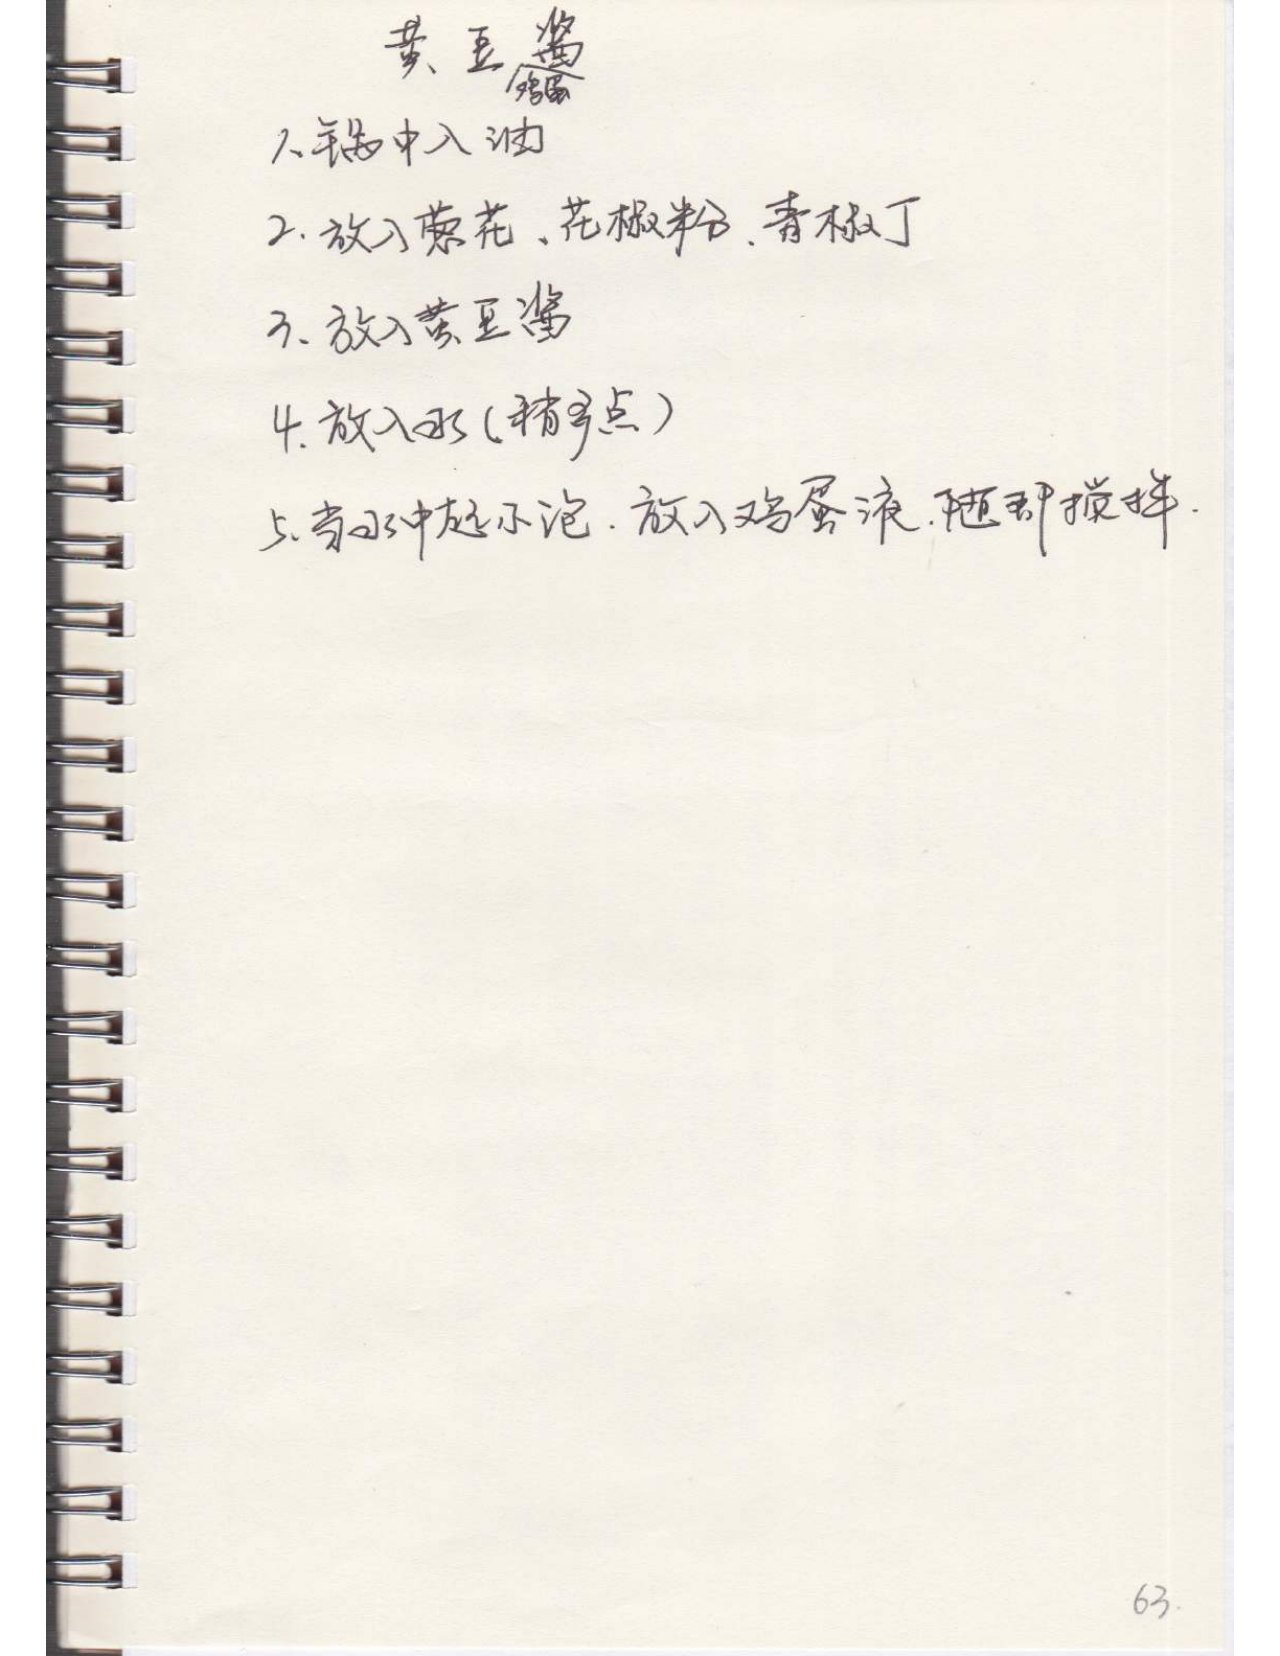 黄豆酱
鸡蛋
1、锅中入油
2. 放入葱花、花椒粉、青椒丁
3. 放入黄豆酱
4. 放入水(稍多点)
5. 当水中起小泡. 放入鸡蛋液. 随即搅拌.
63.